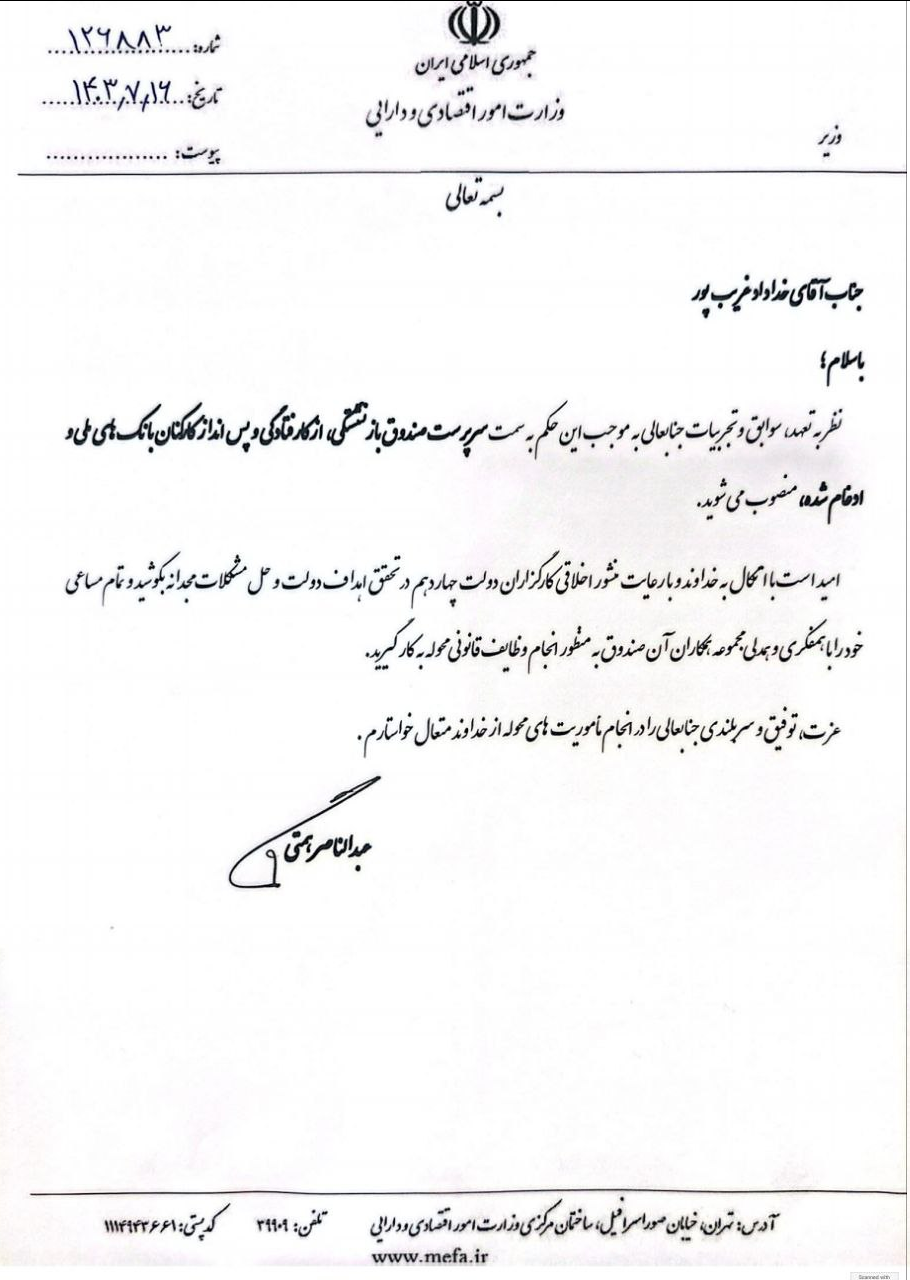 جمهوری اسلامی ایران
وزارت امور اقتصادی و دارایی
وزیر
شماره: ۱۲۶۸۸۳
تاریخ: ۱۴۰۳٫۷٫۱۶
پیوست: ..................
بسمه تعالی
جناب آقای خداداد غریب پور
باسلام؛
نظر به تعهد، سوابق و تجربیات جنابعالی به موجب این حکم به سمت سرپرست صندوق بازنشستگی، از کارافتادگی و پس انداز کارکنان بانک های ملی و
ادغام شده، منصوب می شوید.
امید است با اتکال به خداوند و با رعایت منشور اخلاقی کارگزاران دولت چهاردهم در تحقق اهداف دولت و حل مشکلات مجدانه بکوشید و تمام مساعی
خود را با همفکری و همدلی مجموعه همکاران آن صندوق به منظور انجام وظایف قانونی محوله به کار گیرید.
عزت، توفیق و سربلندی جنابعالی را در انجام مأموریت های محوله از خداوند متعال خواستارم .
عبدالناصر همتی
آدرس: تهران، خیابان صوراسرافیل، ساختمان مرکزی وزارت امور اقتصادی و دارایی تلفن: ۳۹۹۰۹ کدپستی: ۱۱۱۴۹۴۳۶۶۱
www.mefa.ir
Scanned with